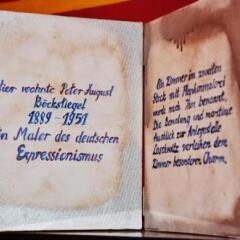 Hier wohnte Peter August
Böckstiegel
1889-1951
ein Maler des deutschen
Expressionismus
Ein Zimmer im zweiten
Stock mit
wurde nach ihm benannt.
Die Bemalung und maritime
Ausblick zur Anlegestelle
Loschwitz verleihen dem
Zimmer besonderen Charm.